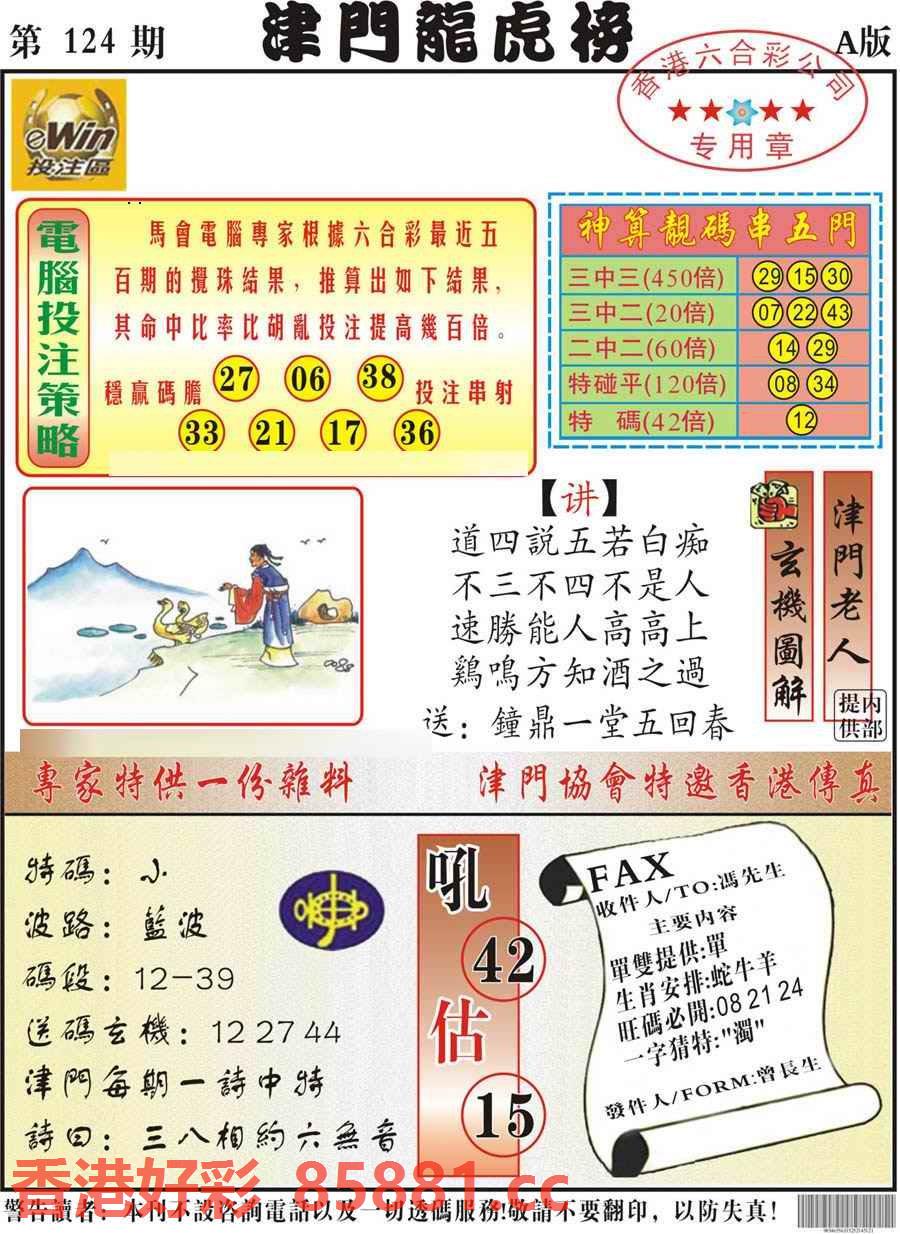 第 124 期
津門龍虎榜
A版
香港六合彩公司
专用章
eWin
投注區
電腦投注策略
馬會電腦專家根據六合彩最近五
百期的攪珠結果，推算出如下結果，
其命中比率比胡亂投注提高幾百倍。
穩贏碼膽 27 06 38 投注串射
33 21 17 36
神算靚碼串五門
三中三(450倍) 29 15 30
三中二(20倍) 07 22 43
二中二(60倍) 14 29
特碰平(120倍) 08 34
特 碼(42倍) 12
【讲】
道四説五若白痴
不三不四不是人
速勝能人高高上
鷄鳴方知酒之過
送：鐘鼎一堂五回春
玄機圖解
津門老人
内部提供
專家特供一份雜料
津門協會特邀香港傳真
特碼：小
波路：藍波
碼段：12-39
送碼玄機：12 27 44
津門每期一詩中特
詩曰：三八相約六無音
吼
42
估
15
FAX
收件人/TO:馮先生
主要内容
單雙提供:單
生肖安排:蛇牛羊
旺碼必開:08 21 24
一字猜特:"濁"
發件人/FORM:曾長生
香港好彩 85881.cc
警告讀者：本刊不設咨詢電話以及一切透碼服務!敬請不要翻印，以防失真!